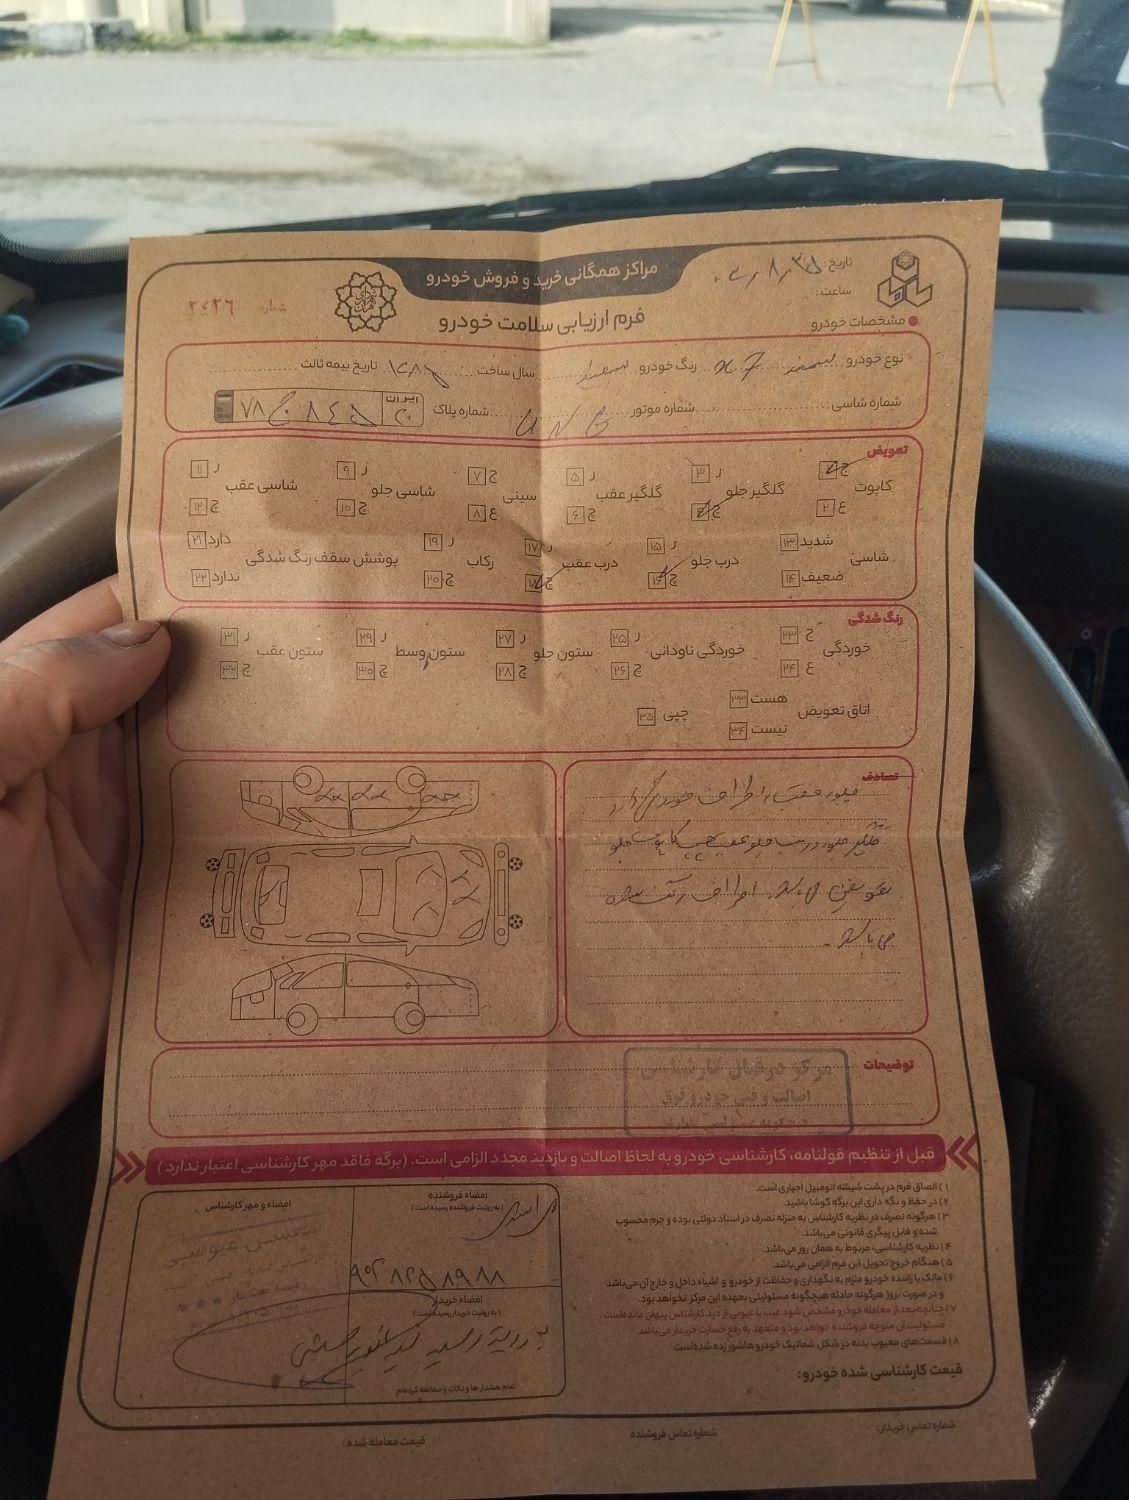 مراکز همگانی خرید و فروش خودرو
فرم ارزیابی سلامت خودرو
تاریخ:
ساعت:
شماره: ۲۰۲۶
مشخصات خودرو
نوع خودرو سمند رنگ خودرو سفید سال ساخت ۱۳۸۵ تاریخ بیمه ثالث
شماره شاسی شماره موتور شماره پلاک ایران ۲۰ ۷۸ ج ۸۴۵
تعویض
کاپوت ج ۱ گلگیر جلو ر ۳ گلگیر عقب ر ۵ سینی ج ۷ شاسی جلو ر ۹ شاسی عقب ر ۱۱
ع ۲ چ ۴ چ ۶ ع ۸ چ ۱۰ چ ۱۲
شاسی شدید ۱۳ درب جلو ر ۱۵ درب عقب ر ۱۷ رکاب ر ۱۹ پوشش سقف رنگ شدگی دارد ۲۱
ضعیف ۱۴ چ ۱۶ چ ۱۸ چ ۲۰ ندارد ۲۲
رنگ شدگی
خوردگی ج ۲۳ خوردگی ناودانی ر ۲۵ ستون جلو ر ۲۷ ستون وسط ر ۲۹ ستون عقب ر ۳۱
ع ۲۴ چ ۲۶ چ ۲۸ چ ۳۰ چ ۳۲
اتاق تعویض هست ۳۳ چپی ۳۵
نیست ۳۴
تصادف
جلو، عقب، اطراف خوردگی دارد
گلگیر جلو، درب جلو عقب چپ کاپوت جلو
تعویض می باشد. اطراف رنگ شده
می باشد.
توضیحات
اصالت و فنی خودرو فوق
قبل از تنظیم قولنامه، کارشناسی خودرو به لحاظ اصالت و بازدید مجدد الزامی است. (برگه فاقد مهر کارشناسی اعتبار ندارد)
۱) الصاق فرم در پشت شیشه اتومبیل اجباری است.
۲) در حفظ و نگه داری این برگه کوشا باشید.
۳) هرگونه تصرف در نظریه کارشناس به منزله تصرف در اسناد دولتی بوده و جرم محسوب
شده و قابل پیگری قانونی می‌باشد.
۴) نظریه کارشناسی، مربوط به همان روز می‌باشد.
۵) هنگام خروج تحویل این فرم الزامی می‌باشد.
۶) مالک یا راننده خودرو ملزم به نگهداری و حفاظت از خودرو و اشیاء داخل و خارج آن می‌باشد
و در صورت بروز هرگونه حادثه هیچگونه مسئولیتی بعهده این مرکز نخواهد بود.
۷) چنانچه بعد از معامله خودرو مشخص شود عیب یا عیوبی از دید کارشناس پنهان مانده است
مسئولیت آن متوجه فروشنده خواهد بود و متعهد به رفع خسارت خریدار می‌باشد.
۸) قسمت‌های معیوب بدنه در شکل شماتیک خودرو هاشور زده شده است
قیمت کارشناسی شده خودرو:
امضاء فروشنده
(به رویت فروشنده رسیده است)
امضاء خریدار
(به رویت خریدار رسیده است)
به رویت رسید
تمام هشدار ها و نکات را مطالعه کرده‌ام
امضاء و مهر کارشناس
شماره تماس خریدار:
شماره تماس فروشنده
قیمت معامله شده: